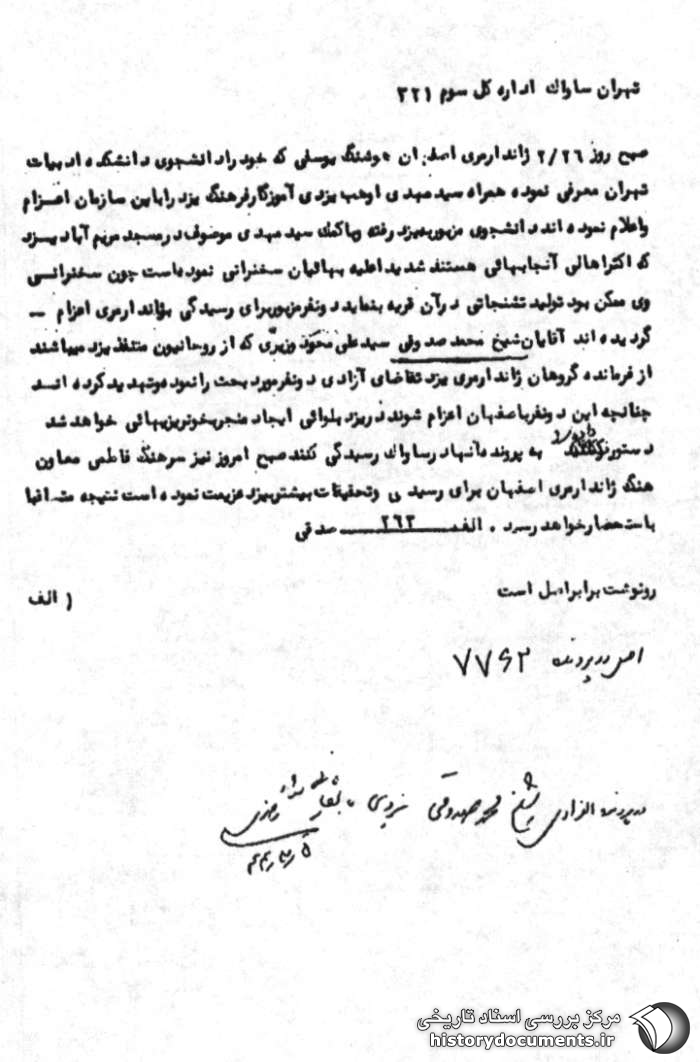 تهران ساواك اداره کل سوم ۳۲۱
صبح روز ۲/۲۶ ژاندارمری اصفهان هوشنگ یوسلی که خود را دانشجوی دانشکده ادبیات
تهران معرفی نموده همراه سید مهدی اوهب یزدی آموزگار فرهنگ یزد را باین سازمان اعزام
واعلام نموده اند دانشجوی مزبور به یزد رفته وبا کمك سید مهدی موصوف در مسجد مریم آباد یزد
که اکثر اهالی آنجا بهائی هستند شدیدا علیه بهائیان سخنرانی نموده است چون سخنرانی
وی ممکن بود تولید تشنجاتی در آن قریه بنماید دونفر مزبور برای رسیدگی بژاندارمری اعزام —
گردیده اند آقایان شیخ محمد صدوقی سید علی محمد وزیری که از روحانیون متنفذ یزد میباشند
از فرمانده گروهان ژاندارمری یزد تقاضای آزادی دونفر مورد بحث را نموده وتهدید کرده اند
چنانچه این دونفر باصفهان اعزام شوند در یزد بلوائی ایجاد منجر بخونریزیهائی خواهد شد
دستور به پرونده آنها در ساواك رسیدگی کنند صبح امروز نیز سرهنگ فاطمی معاون
هنگ ژاندارمری اصفهان برای رسیدگی وتحقیقات بیشتر بیزد عزیمت نموده است نتیجه متعاقبا
باستحضار خواهد رسد . الف ۲۶۳ صدقی
رونوشت برابر اصل است
۱ الف
اصل در پرونده ۷۷۶۲
در پرونده انفرادی شیخ محمد صدوقی
مرکز بررسی اسناد تاریخی
historydocuments.ir